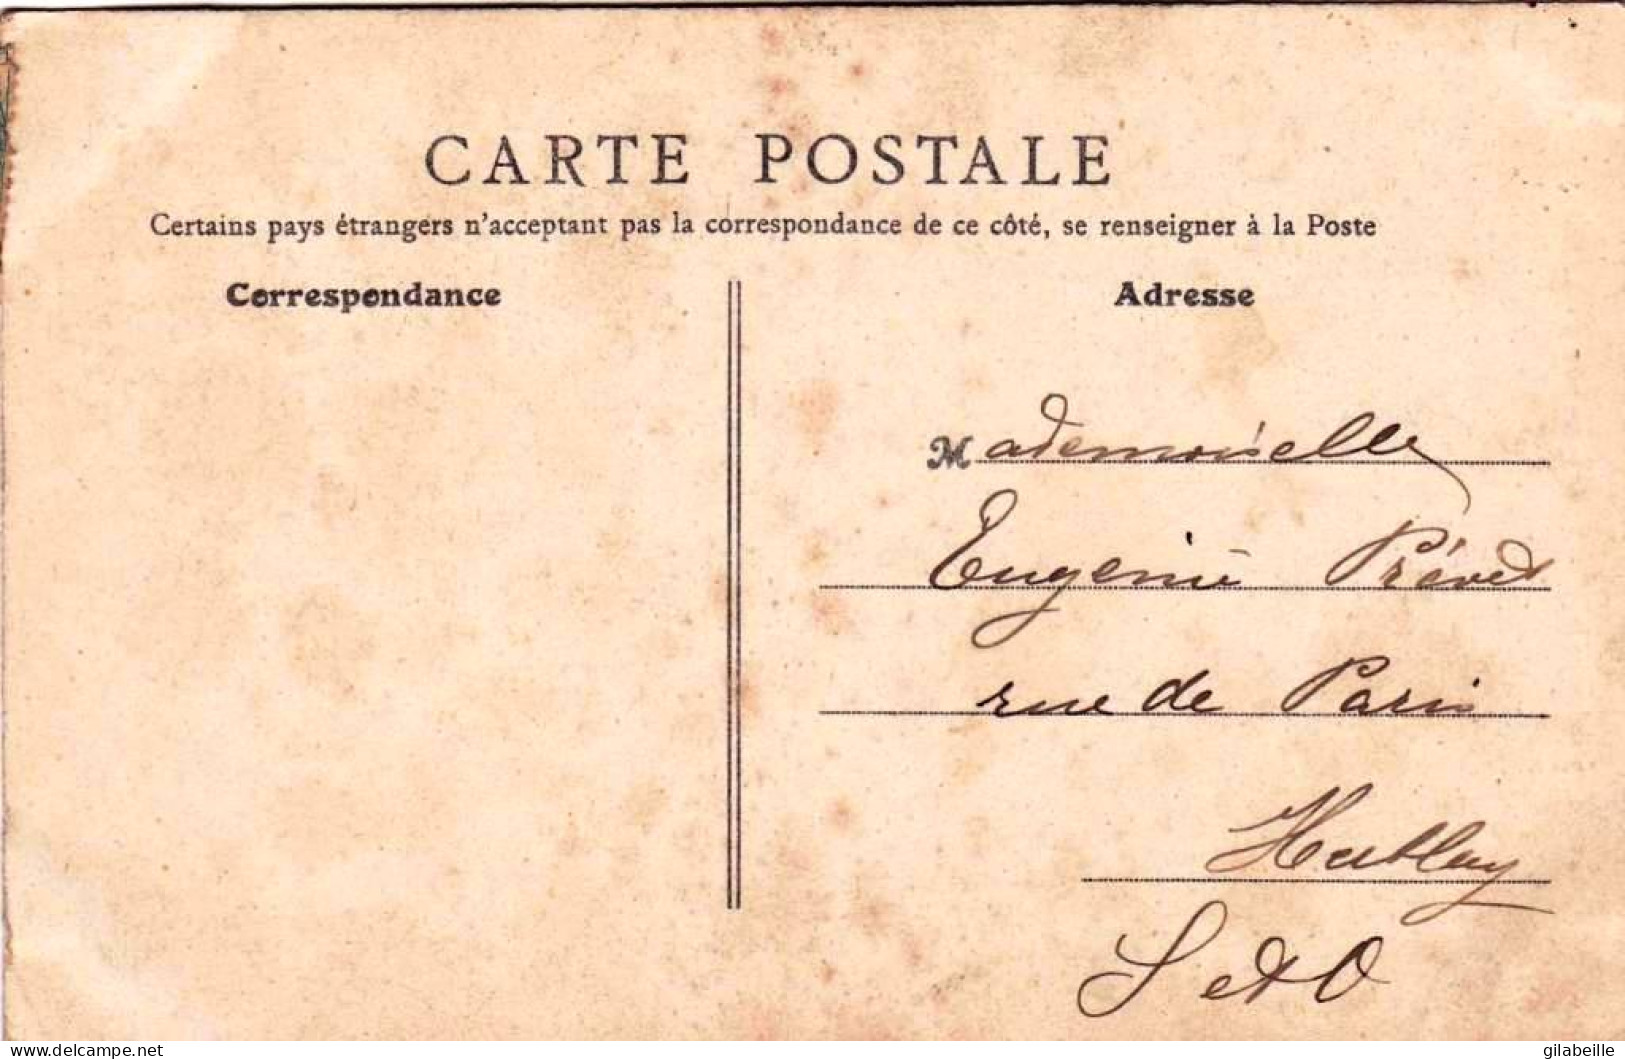 CARTE POSTALE
Certains pays étrangers n'acceptant pas la correspondance de ce côté, se renseigner à la Poste
Correspondance
Adresse
Mademoiselle
Eugénie Prévot
rue de Paris
Herblay
S et O
www.delcampe.net
gilabeille